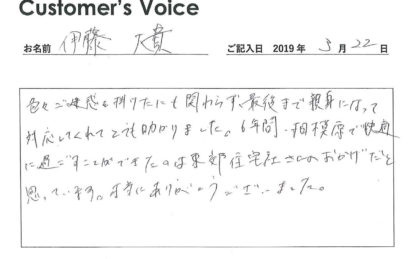 Customer's Voice
お名前 伊藤 大貴 ご記入日 2019 年 5 月 22 日
色々ご迷惑を掛けたにも関わらず、最後まで親身になって
対応してくれてとても助かりました。6年間、相模原で快適
に過ごすことができたのは東郊住宅社さんのおかげだと
思っています。本当にありがとうございました。